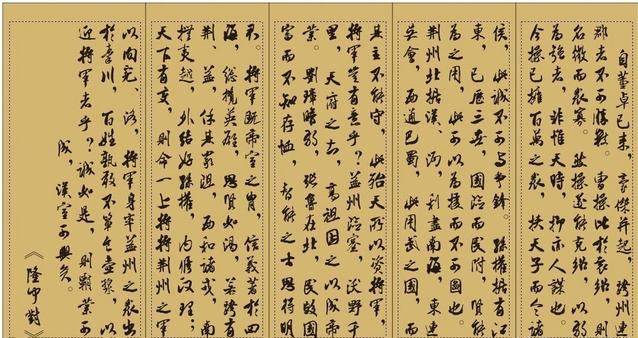 自董卓已来，豪傑并起，跨州連
郡者不可勝數。曹操比於袁紹，則
名微而衆寡。然操遂能克紹，以弱
為強者，非惟天時，抑亦人謀也。
今操已擁百萬之衆，挾天子而令諸
侯，此誠不可与爭鋒。孫權據有江
東，已歷三世，國險而民附，賢能
為之用，此可以為援而不可圖也。
荆州北據漢、沔，利盡南海，東連
吴會，西通巴蜀，此用武之國，而
其主不能守，此殆天所以資將軍，
將軍豈有意乎？益州險塞，沃野千
里，天府之土，高祖因之以成帝
業。劉璋暗弱，張魯在北，民殷國
富而不知存恤，智能之士思得明
君。將軍既帝室之胄，信義著於四
海，總攬英雄，思賢如渴，若跨有
荆、益，保其岩阻，西和諸戎，南
撫夷越，外结好孫權，内修政理；
天下有变，則命一上將將荆州之軍
以向宛、洛，將軍身率益州之衆出
於秦川，百姓孰敢不箪食壺漿，以
迎將軍者乎？誠如是，則霸業可
成，漢室可興矣。
《隆中對》